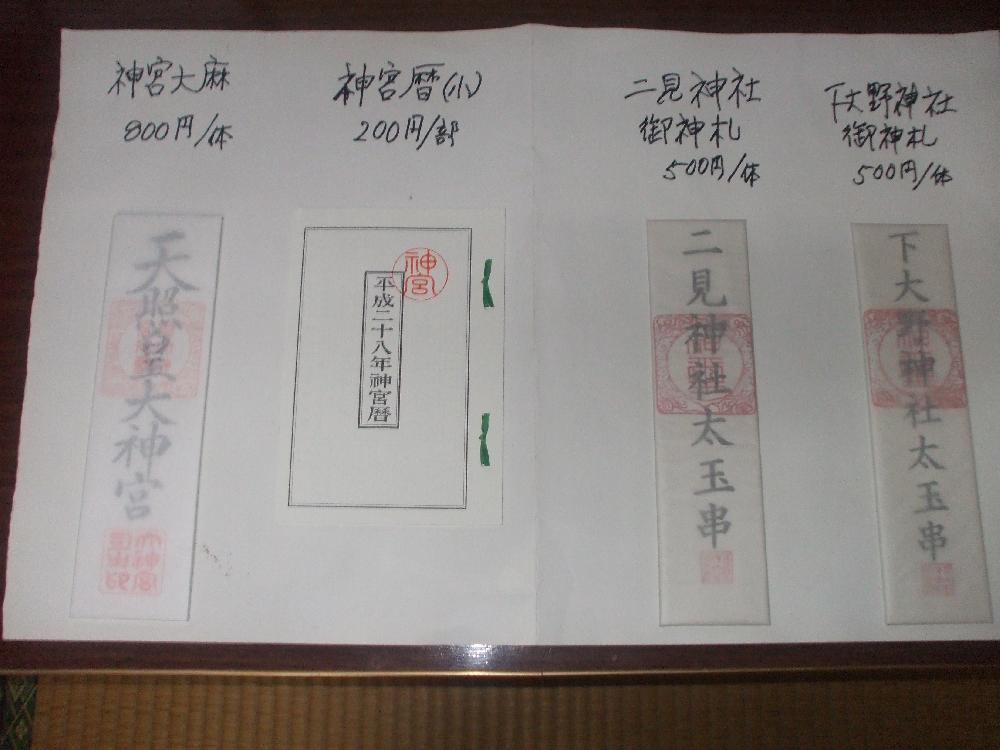 神宮大麻
800円/体
神宮暦(小)
200円/部
二見神社
御神札
500円/体
下大野神社
御神札
500円/体
天照皇大神宮
神宮
平成二十八年神宮暦
二見神社太玉串
下大野神社太玉串